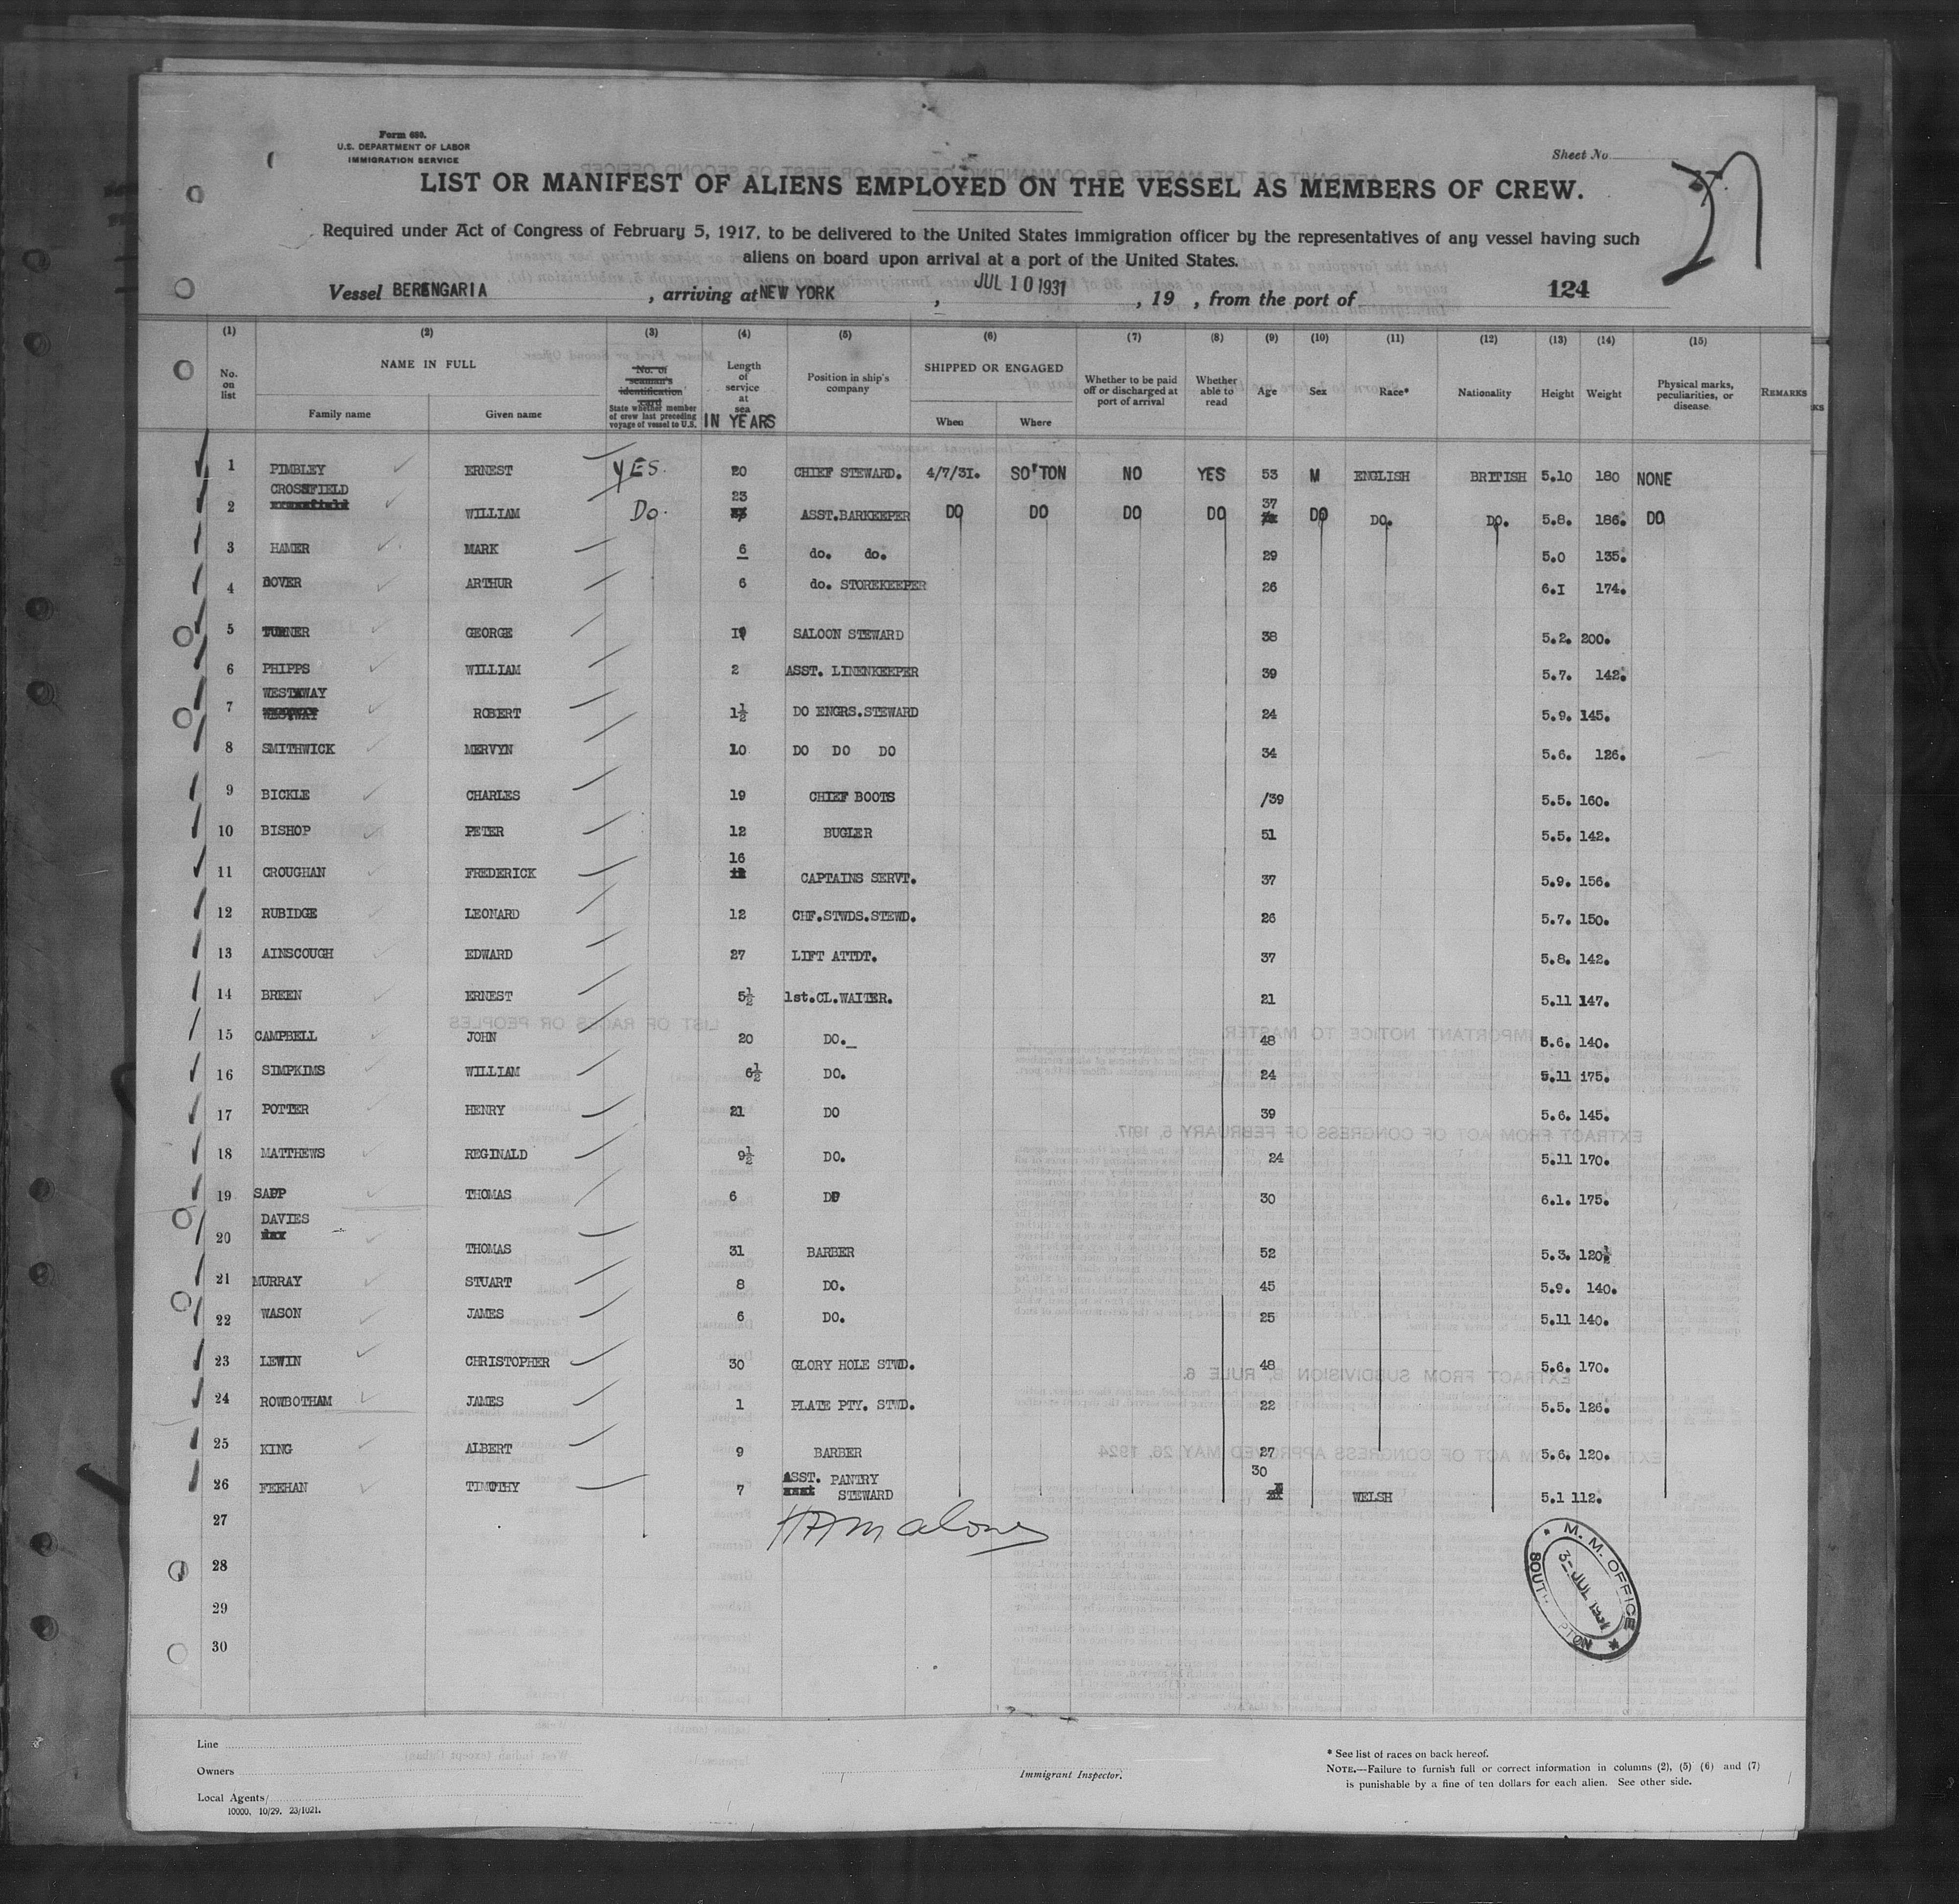 Form 680.
U.S. DEPARTMENT OF LABOR
IMMIGRATION SERVICE
Sheet No
LIST OR MANIFEST OF ALIENS EMPLOYED ON THE VESSEL AS MEMBERS OF CREW.
Required under Act of Congress of February 5, 1917, to be delivered to the United States immigration officer by the representatives of any vessel having such
aliens on board upon arrival at a port of the United States.
Vessel BERENGARIA, arriving at NEW YORK, JUL 10 1931, 19 , from the port of 124
(1) (2) (3) (4) (5) (6) (7) (8) (9) (10) (11) (12) (13) (14) (15)
No. on list NAME IN FULL Family name Given name No. of seaman's identification card State whether member of crew last preceding voyage of vessel to U.S. Length of service at sea IN YEARS Position in ship's company SHIPPED OR ENGAGED When Where Whether to be paid off or discharged at port of arrival Whether able to read Age Sex Race* Nationality Height Weight Physical marks, peculiarities, or disease REMARKS
1 PIMBLEY ERNEST YES. 20 CHIEF STEWARD. 4/7/31. SO'TON NO YES 53 M ENGLISH BRITISH 5.10 180 NONE
2 CROSSFIELD WILLIAM Do. 23 ASST.BARKEEPER DO DO DO DO 37 DO DO. DO. 5.8. 186. DO
3 HAMER MARK 6 do. do. 29 5.0 135.
4 DOVER ARTHUR 6 do. STOREKEEPER 26 6.I 174.
5 TURNER GEORGE SALOON STEWARD 38 5.2. 200.
6 PHIPPS WILLIAM 2 ASST. LINENKEEPER 39 5.7. 142.
7 WESTAWAY ROBERT 1½ DO ENGRS.STEWARD 24 5.9. 145.
8 SMITHWICK MERVYN 10 DO DO DO 34 5.6. 126.
9 BICKLE CHARLES 19 CHIEF BOOTS /39 5.5. 160.
10 BISHOP PETER 12 BUGLER 51 5.5. 142.
11 CROUGHAN FREDERICK 16 CAPTAINS SERVT. 37 5.9. 156.
12 RUBIDGE LEONARD 12 CHF.STWDS.STEWD. 26 5.7. 150.
13 AINSCOUGH EDWARD 27 LIFT ATTDT. 37 5.8. 142.
14 BREEN ERNEST 5½ 1st.CL.WAITER. 21 5.11 147.
15 CAMPBELL JOHN 20 DO._ 48 5.6. 140.
16 SIMPKIMS WILLIAM 6½ DO. 24 5.11 175.
17 POTTER HENRY 21 DO 39 5.6. 145.
18 MATTHEWS REGINALD 9½ DO. 24 5.11 170.
19 SAPP THOMAS 6 DO 30 6.1. 175.
20 DAVIES THOMAS 31 BARBER 52 5.3. 120½
21 MURRAY STUART 8 DO. 45 5.9. 140.
22 WASON JAMES 6 DO. 25 5.11 140.
23 LEWIN CHRISTOPHER 30 GLORY HOLE STWD. 48 5.6. 170.
24 ROWBOTHAM JAMES 1 PLATE PTY. STWD. 22 5.5. 126.
25 KING ALBERT 9 BARBER 27 5.6. 120.
26 FEEHAN TIMOTHY 7 ASST. PANTRY STEWARD 30 WELSH 5.1 112.
27
28
29
30
M. M. OFFICE
3-JUL 1931
Line
Owners
Local Agents
10000. 10/29. 23/1021.
Immigrant Inspector.
* See list of races on back hereof.
NOTE.—Failure to furnish full or correct information in columns (2), (5) (6) and (7)
is punishable by a fine of ten dollars for each alien. See other side.